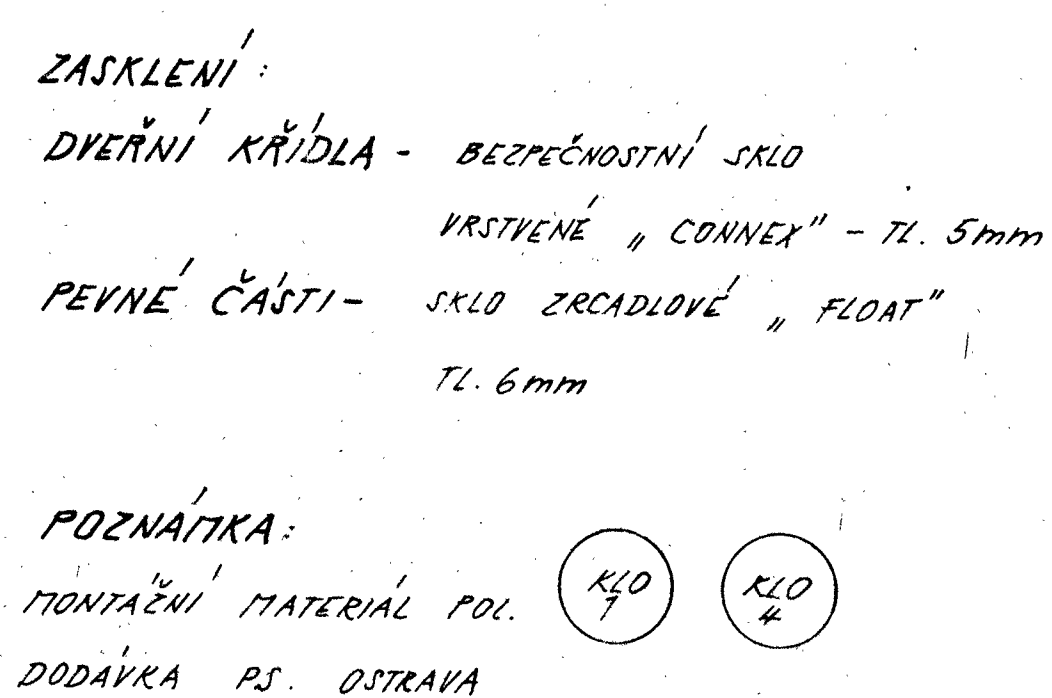 ZASKLENÍ:
DVEŘNÍ KŘÍDLA - BEZPEČNOSTNÍ SKLO
VRSTVENÉ „CONNEX" - TL. 5mm
PEVNÉ ČÁSTI - SKLO ZRCADLOVÉ „FLOAT"
TL. 6mm
POZNÁMKA:
MONTÁŽNÍ MATERIÁL POL. KLO 1 KLO 4
DODÁVKA PS. OSTRAVA